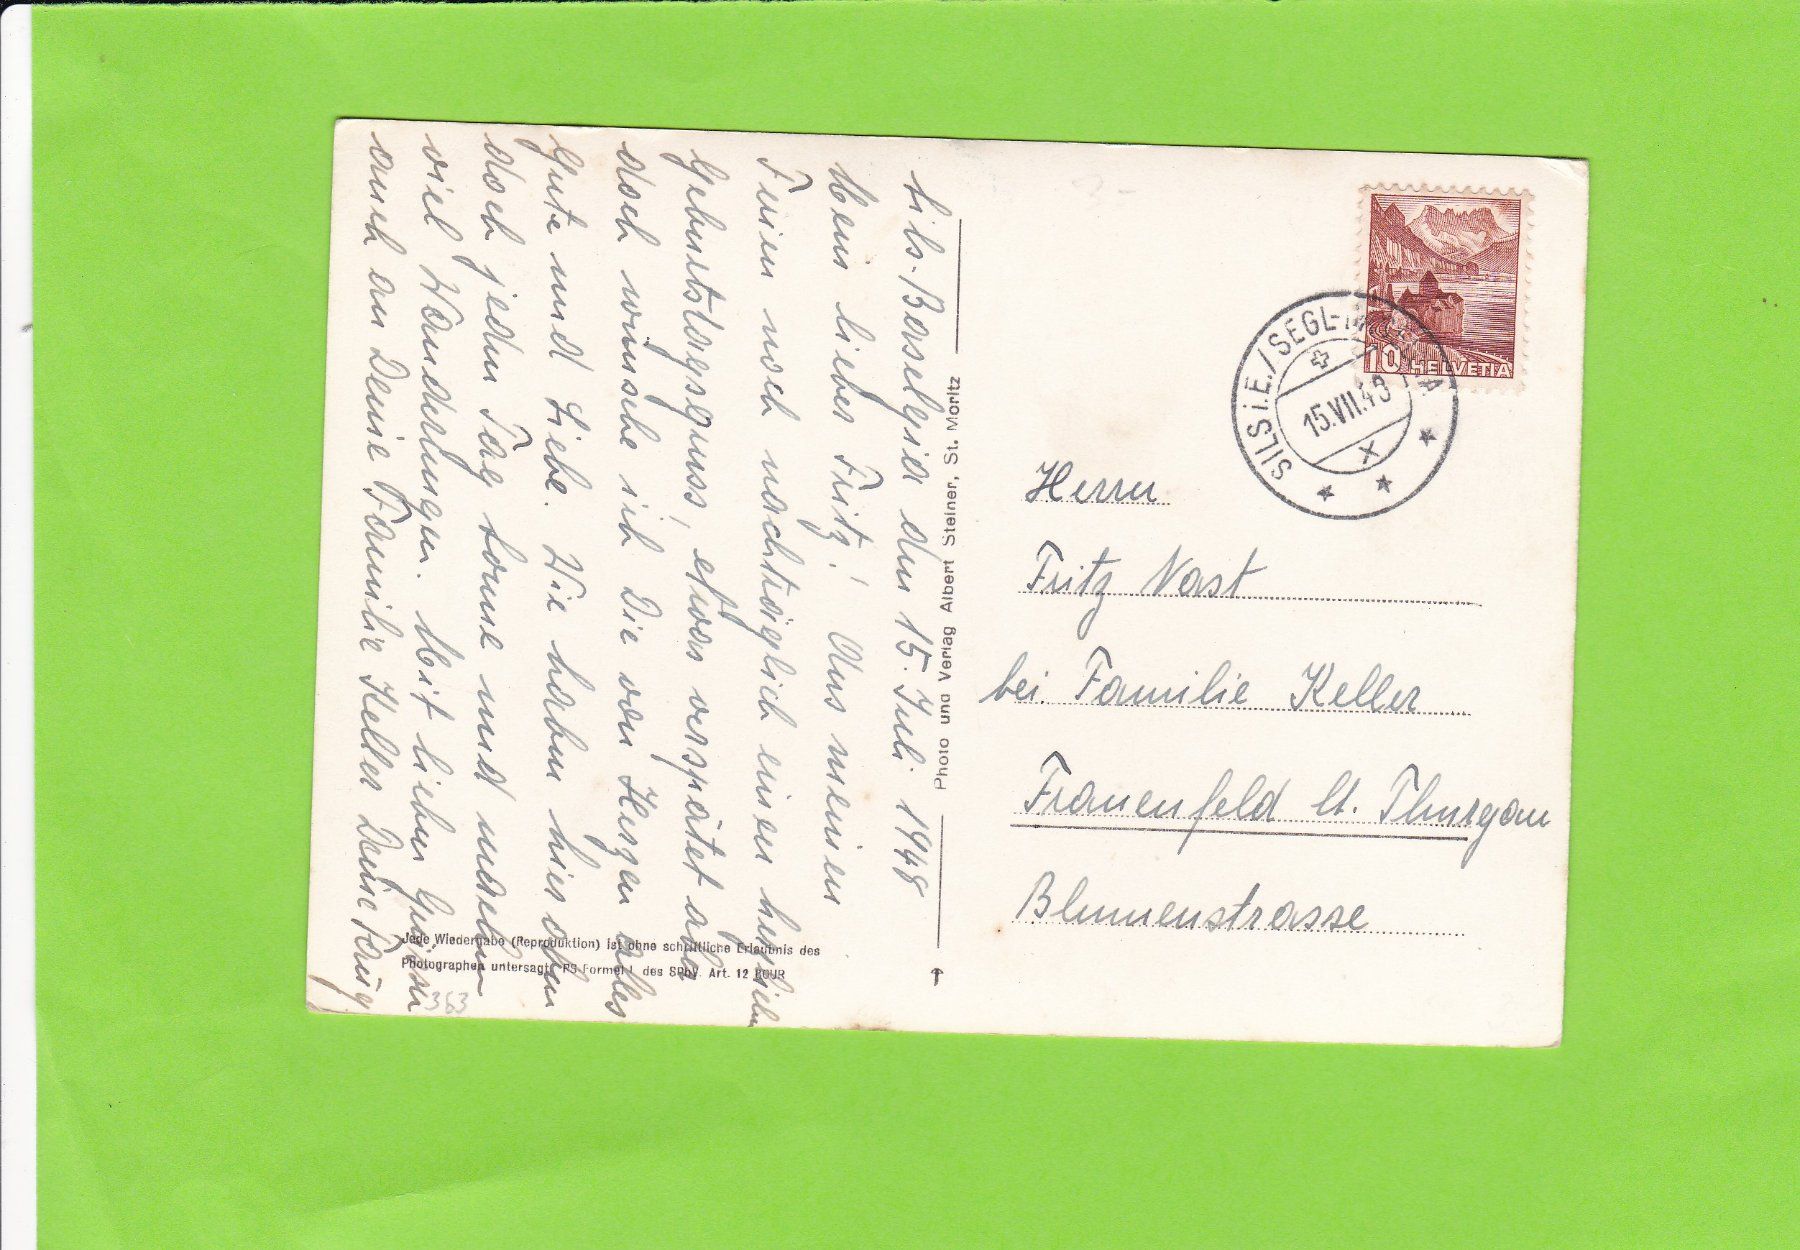 Sils-Baselgia den 15. Juli 1948
Mein lieber Fritz! Aus meinen
Ferien noch nachträglich einen herzlichen
Geburtstagsgruss, etwas verspätet aber
doch wünsche ich Dir von Herzen alles
Gute und Liebe. Wir haben hier oben
doch jeden Tag Sonne und machen
viel Wanderungen. Mit lieben Grüssen
auch an Deine Familie Keller Deine
Photo und Verlag Albert Steiner, St. Moritz
Jede Wiedergabe (Reproduktion) ist ohne schriftliche Erlaubnis des
Photographen untersagt. PS-Formel I des SPhV. Art. 12 BGUR
363
10 HELVETIA
SILS i.E./SEGL-
15.VII.48
X
Herrn
Fritz Nast
bei Familie Keller
Frauenfeld Ct. Thurgau
Blumenstrasse